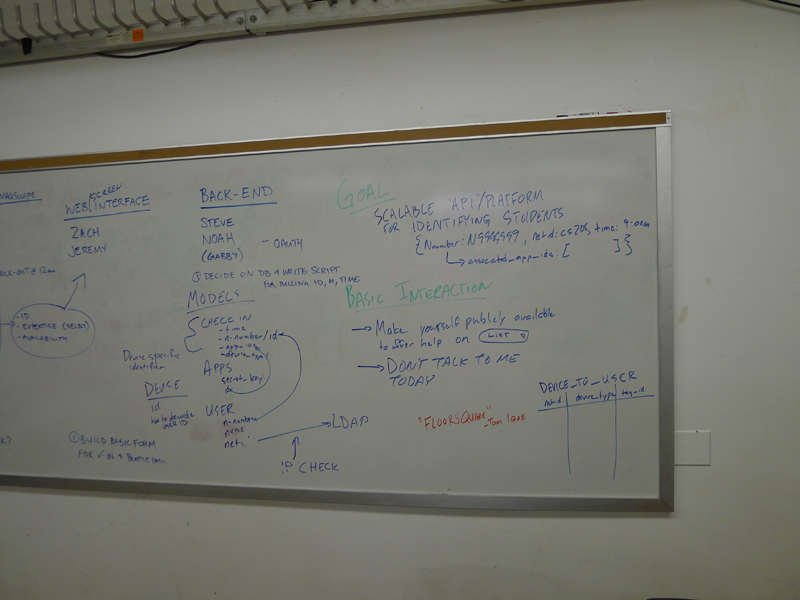 SCREEN
WEB INTERFACE
ZACH
JEREMY
-ID
- EXPERTISE (SELECT)
- AVAILABILITY
BACK-END
STEVE
NOAH
(GABBY)
- OAUTH
① DECIDE ON DB + WRITE SCRIPT
FOR MILKING ID, N, TIME
MODELS
CHECK IN
- time
- n-number/id
- app-id
- device type
Device specific
identifier
APPS
secret_key
DEVICE
id
USER
n-number
name
LDAP
IP CHECK
① BUILD BASIC FORM
GOAL
SCALABLE API/PLATFORM
FOR IDENTIFYING STUDENTS
{ Nnumber: N9999999, netid: cs209, time: 9:00am
associated_app_ids: [ ] }
BASIC INTERACTION
→ Make yourself publicly available
to offer help on LIST
→ DON'T TALK TO ME
TODAY
"FLOORSQUARE"
- Tom Igoe
DEVICE_TO_USER
netid device_type tag_id